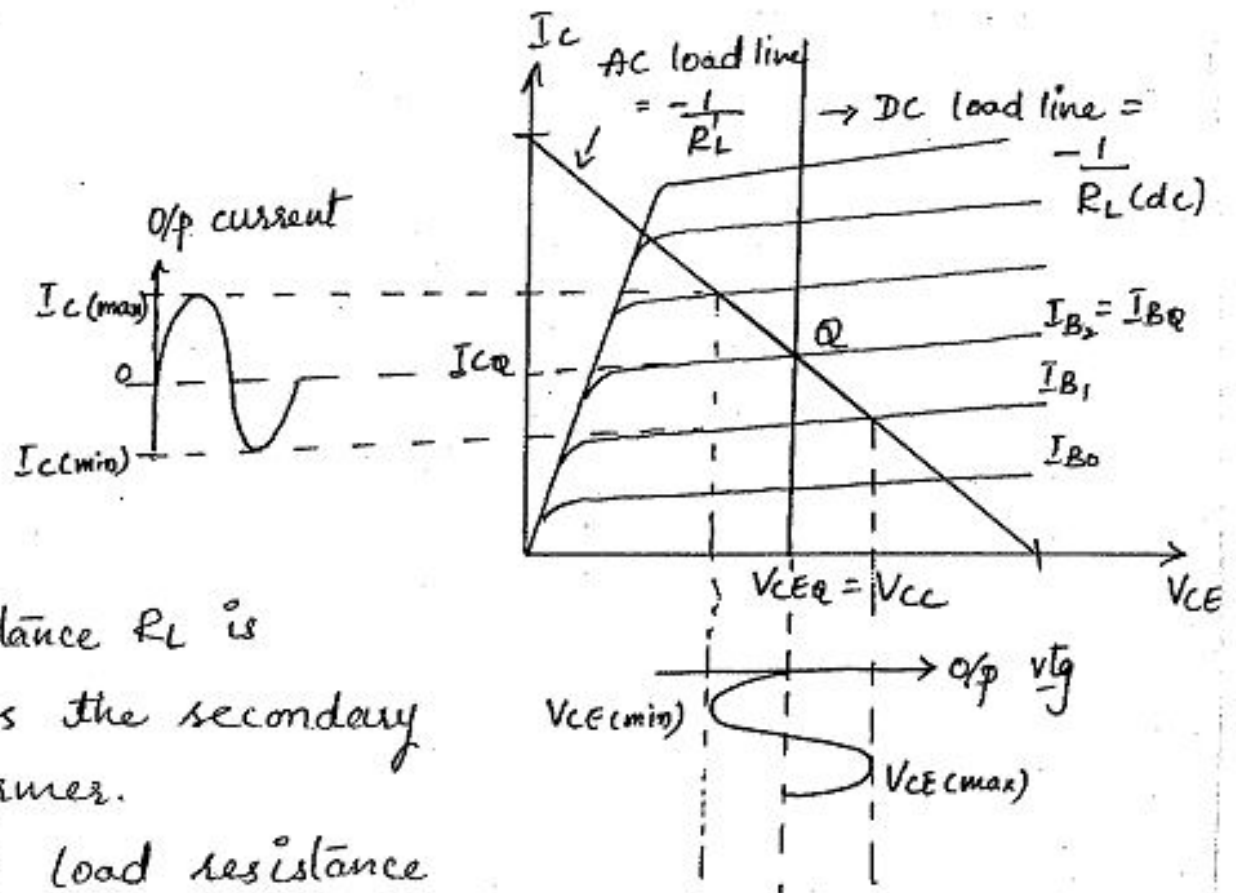 Ic
AC load line
= -1/R'L
→ DC load line =
-1/RL(dc)
O/p current
Ic(max)
0
Ic(min)
ICQ
Q
IB2 = IBQ
IB1
IB0
VCEQ = VCC
VCE
O/p vtg
VCE(min)
VCE(max)
dance RL is
s the secondary
rmer.
load resistance